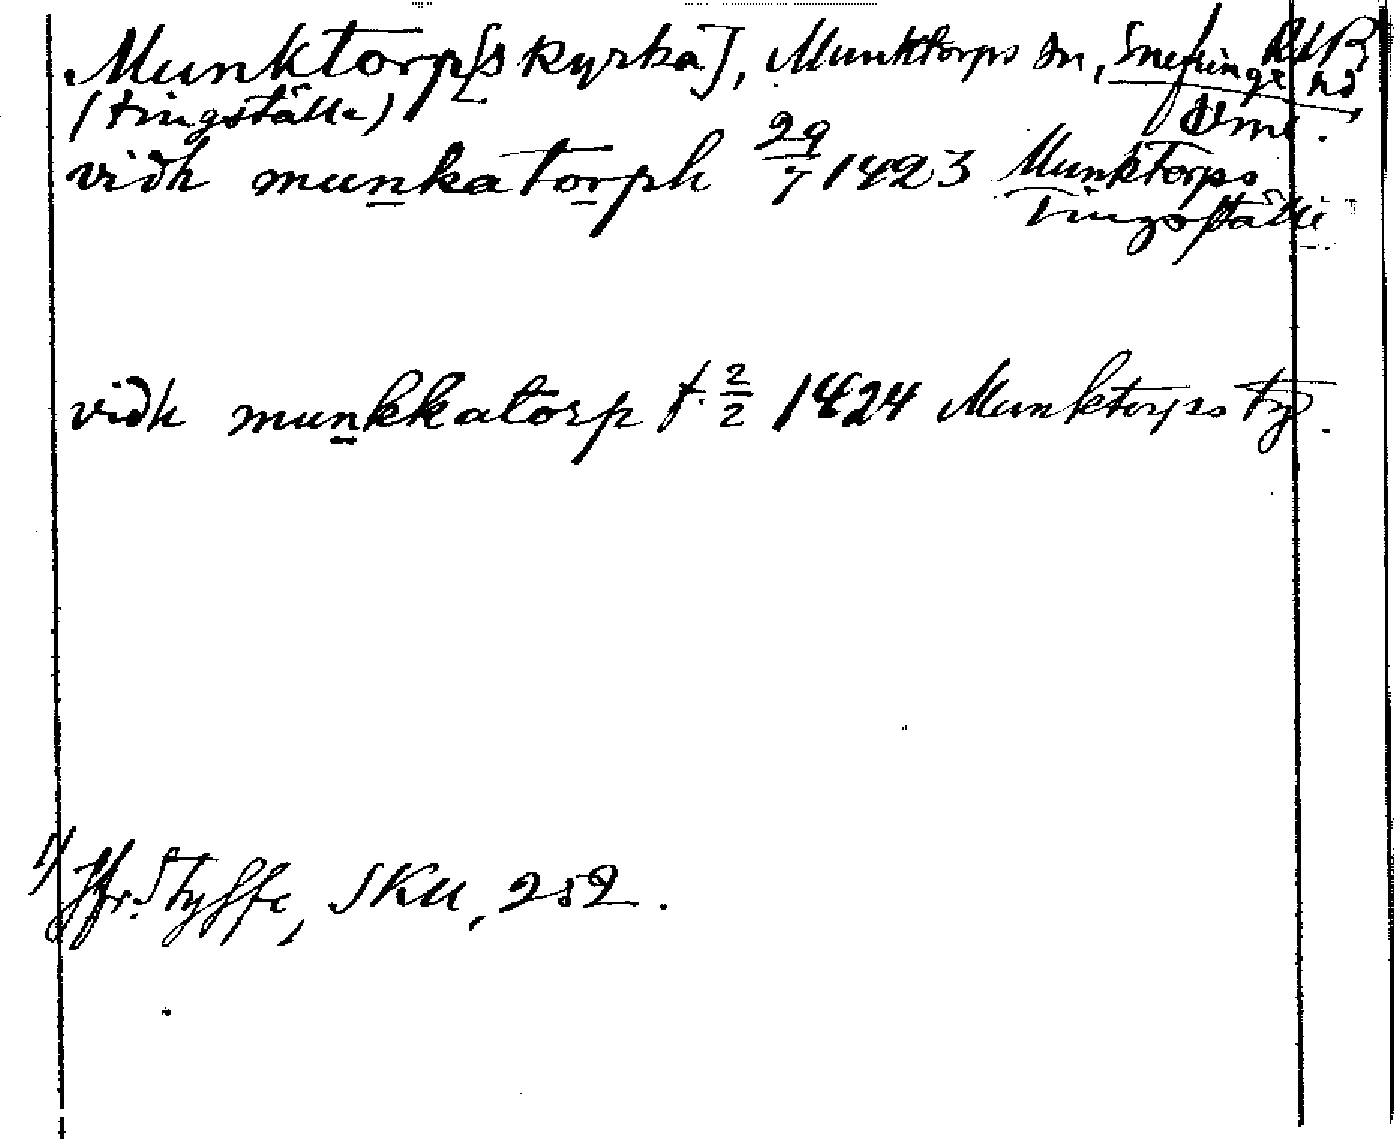 Munktorp[s kyrka], Munktorps sn, Snefringe hd
(tingställe) Vsml.
vidh munkatorph 29/7 1423 Munktorps
Tingställe
vidh munkkatorp f. 2/2 1424 Munktorps
1) Jfr. Styffe, SKU, 252.